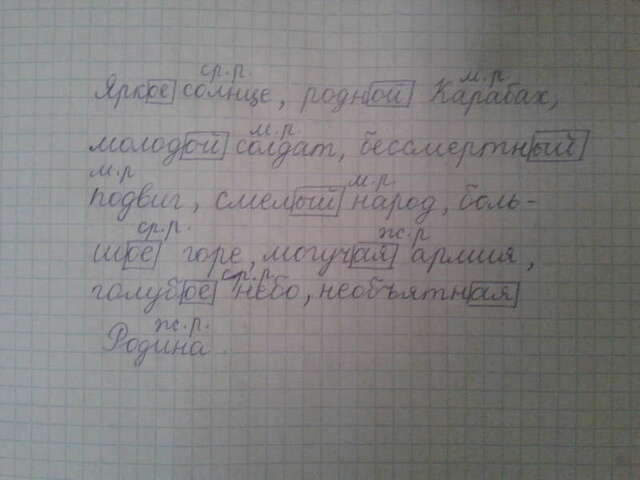 ср.р. м.р
Яркое солнце, родной Карабах,
м.р.
молодой солдат, бессмертный
м.р м.р.
подвиг, смелый народ, боль-
ср.р. ж.р
шое горе, могучая армия,
ср.р.
голубое небо, необъятная
ж.р.
Родина.